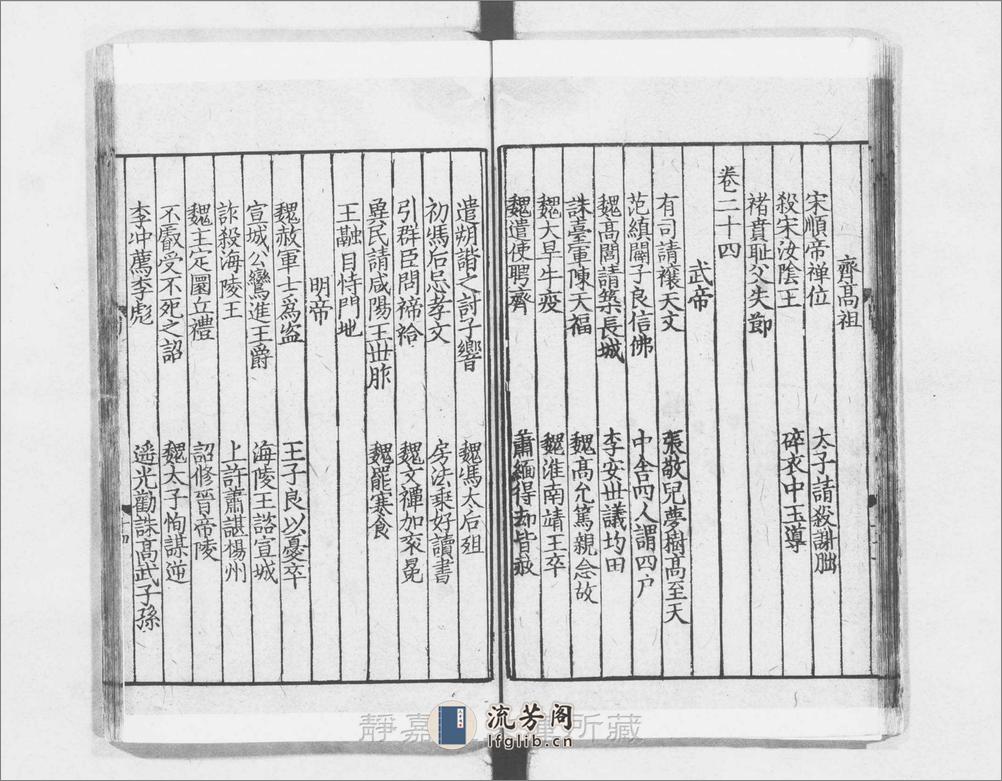 齊高祖
宋順帝禅位
太子請殺謝朏
殺宋汝陰王
碎衣中玉導
褚賁耻父失節
卷二十四
武帝
有司請禳天文
張敬兒夢樹高至天
范縝闢子良信佛
中舍四人謂四户
魏高閭請築長城
李安世議均田
誅臺軍陳天福
魏高允篤親念故
魏大旱牛疫
魏淮南靖王卒
魏遣使聘齊
蕭緬得劫皆赦
遣胡諧之討子響
魏馮太后殂
初馮后忌孝文
房法乗好讀書
引群臣問禘祫
魏文禪加衮冕
異民請咸陽王世胙
魏罷寒食
王融自恃門地
明帝
魏赦軍士爲盗
王子良以憂卒
宣城公鸞進王爵
海陵王諮宣城
詐殺海陵王
上許蕭諶楊州
魏主定圜丘禮
詔修晉帝陵
不嚴受不死之詔
魏太子恂謀逆
李冲薦李彪
遥光勸誅高武子孫
静嘉 所藏
流芳阁
lfglib.cn